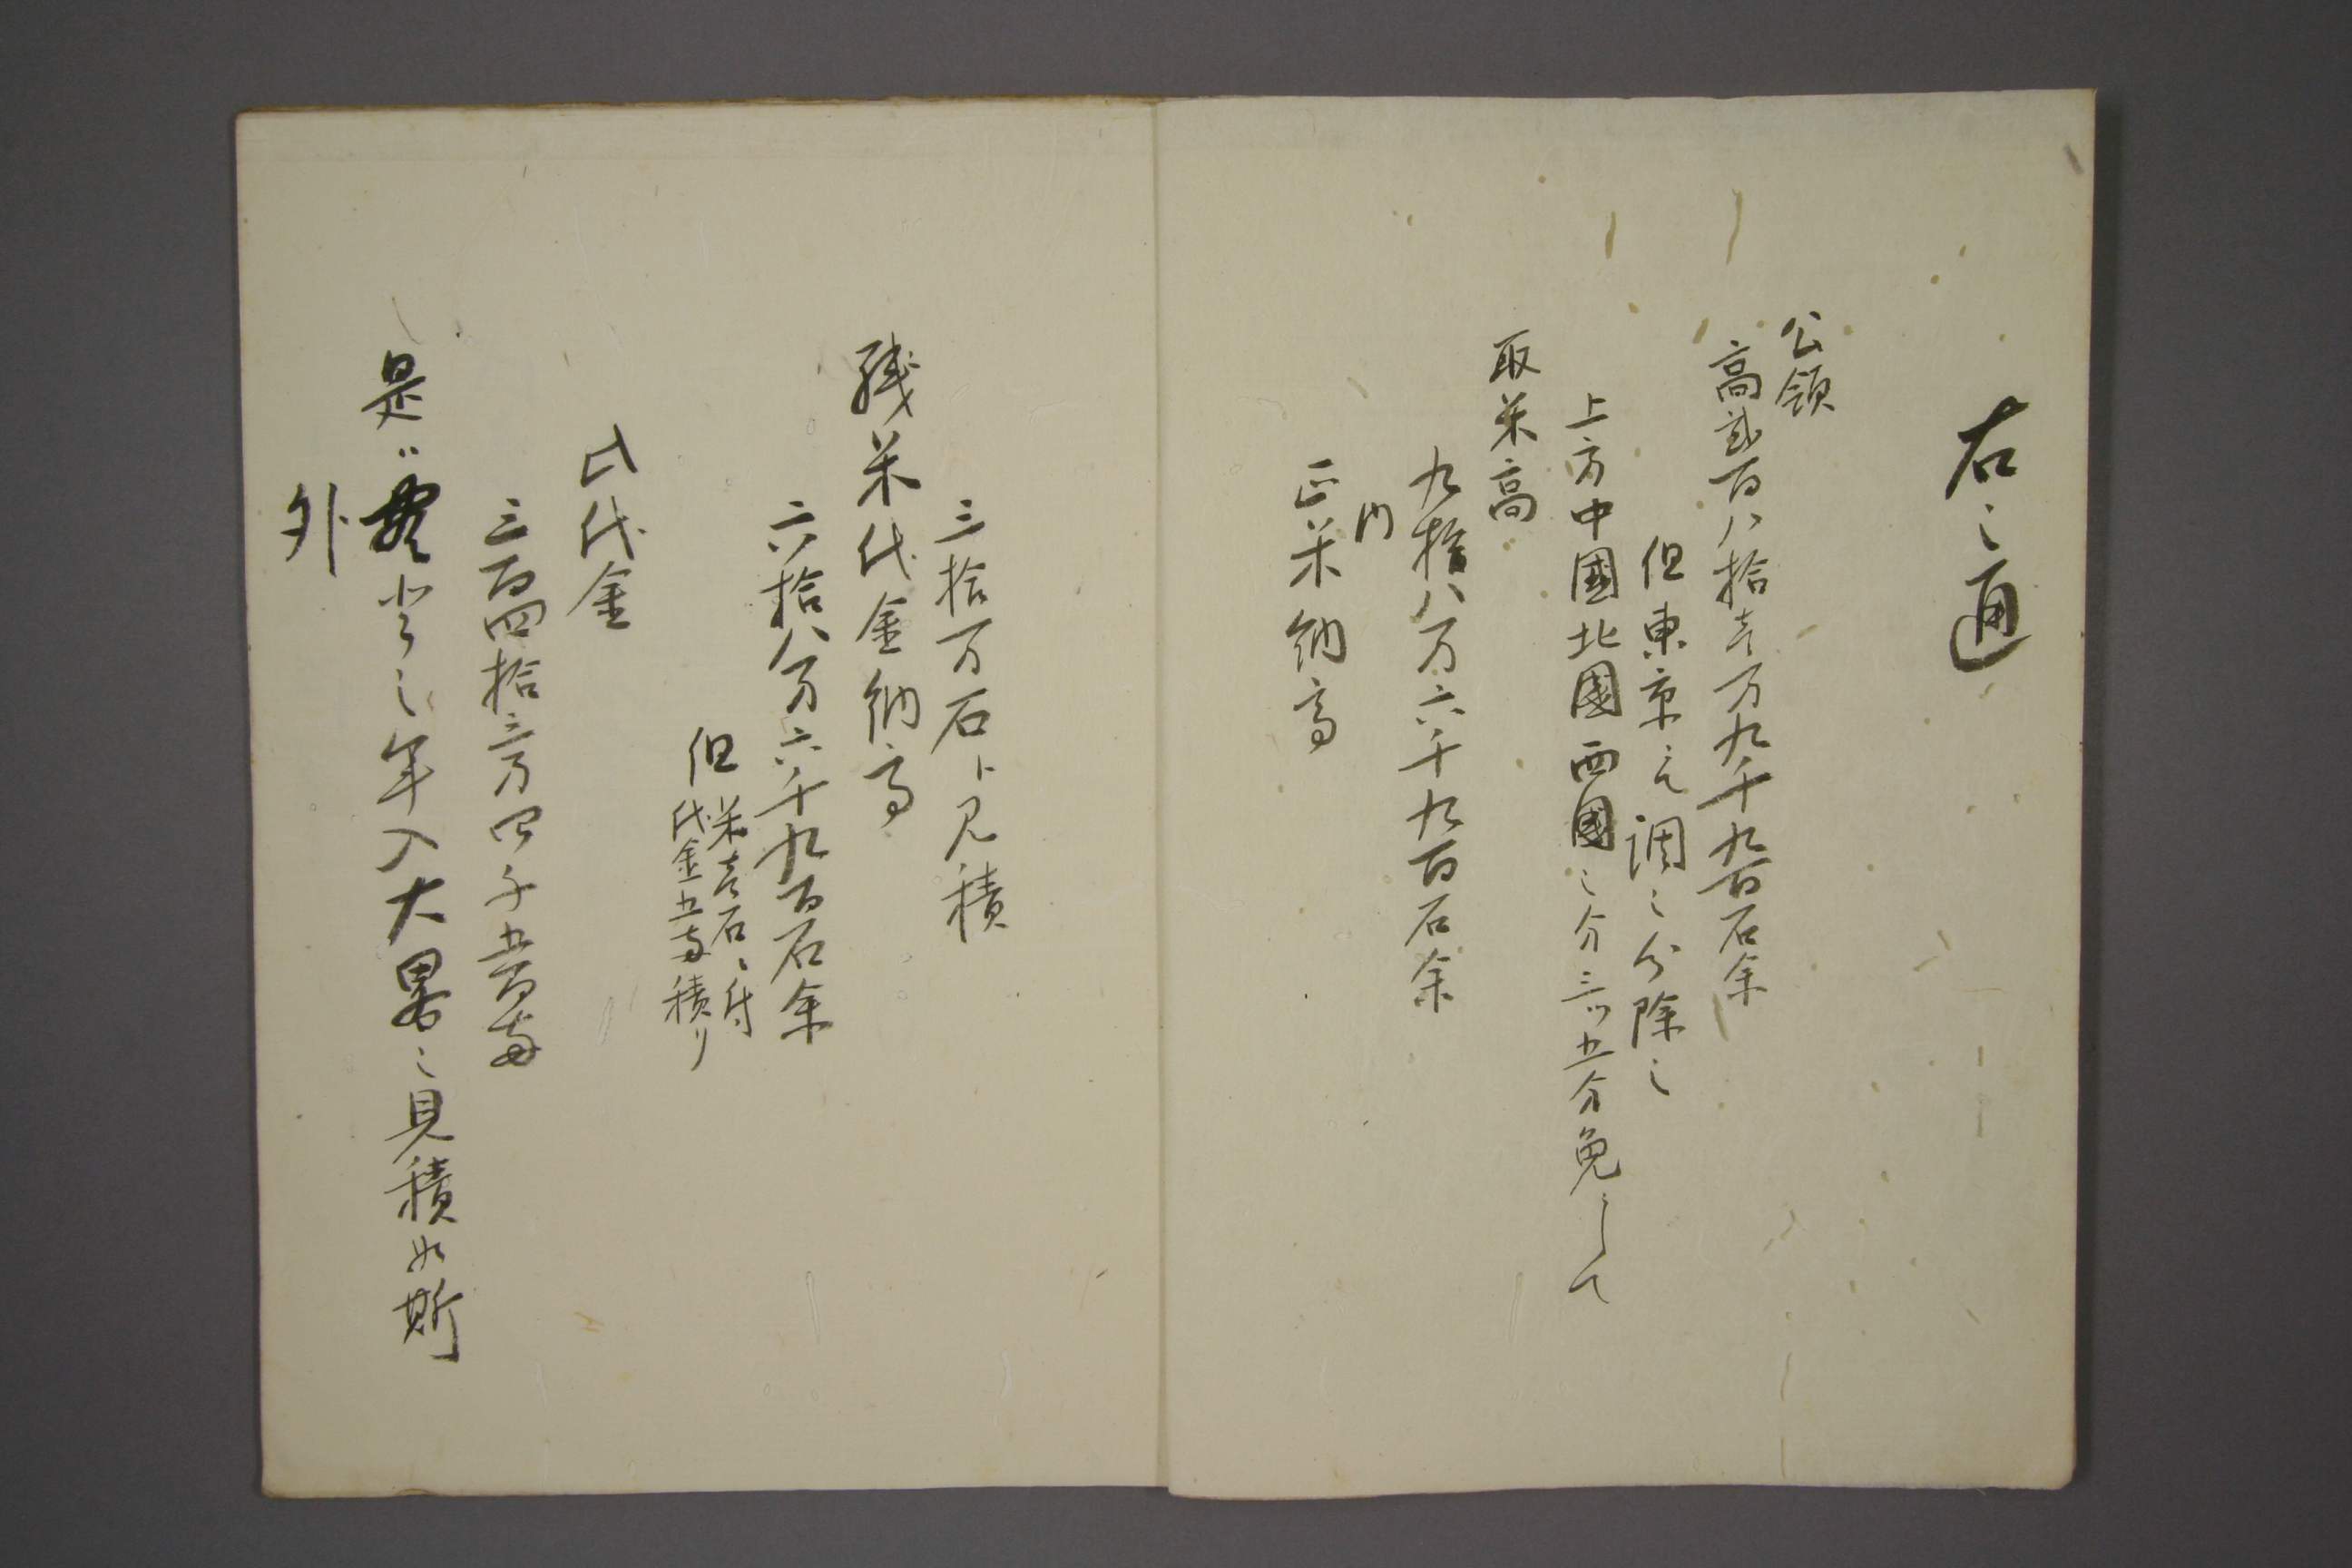 右之通
公領
高弐百八拾壱万九千九百石余
但東京ニ而調之分除之
上方中國北國西國之分三ツ五分免ニして
取米高
九拾八万六千九百石余
内
正米納高
三拾万石ト見積
残米代金納高
六拾八万六千九百石余
但米壱石ニ付
代金五両積り
此代金
三百四拾三万四千五百両
是ハ当之年入大畧之見積如斯
外